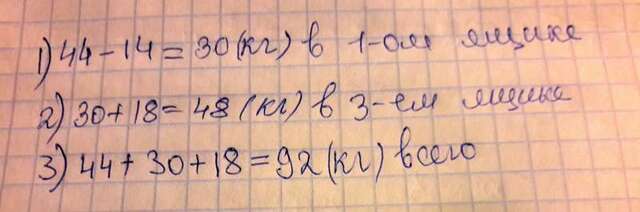 1) 44-14=30(кг) в 1-ом ящике
2) 30+18=48 (кг) в 3-ем ящике
3) 44+30+18=92(кг) всего